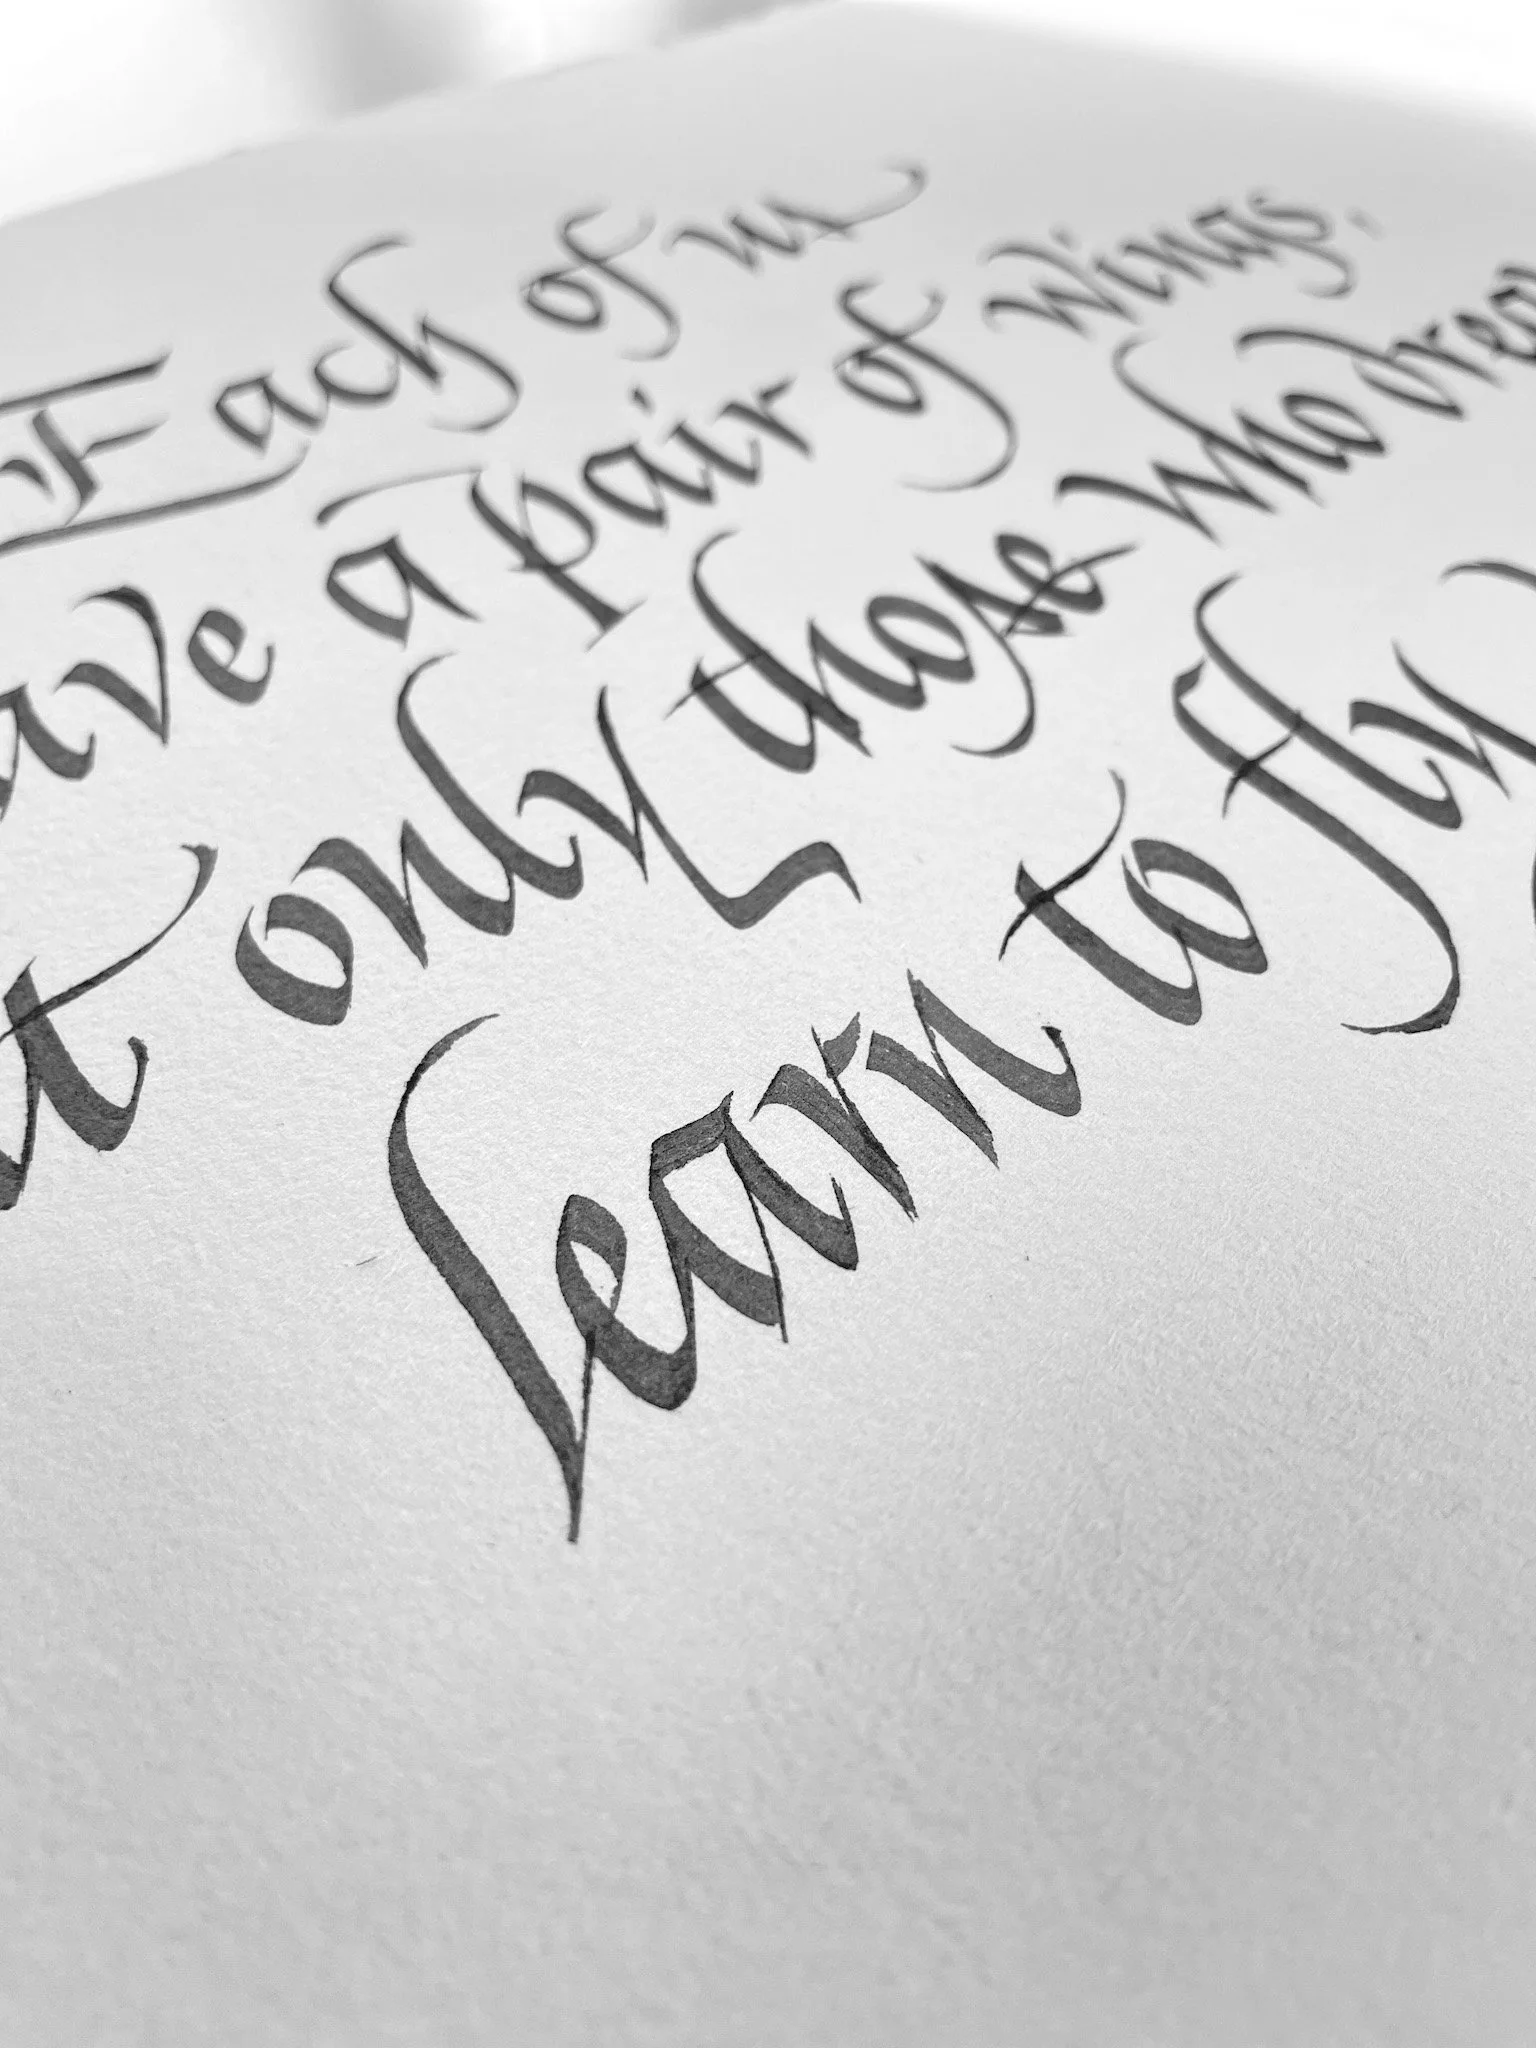 Each of us
ave a pair of wings,
t only those who drea
learn to fly